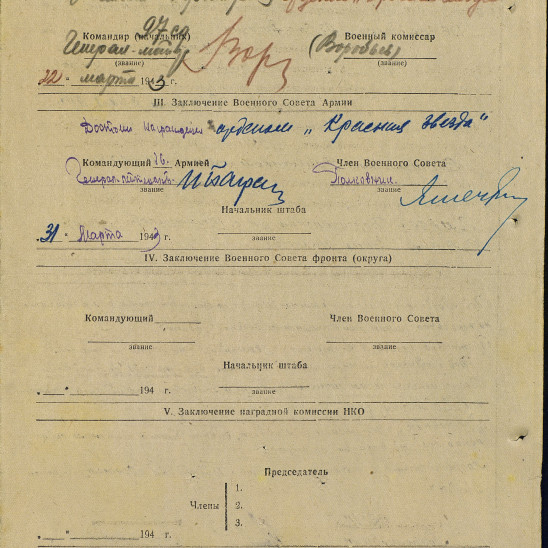 97 сд
Командир (начальник) Военный комиссар
Генерал-майор (Воробьев)
(звание) (звание)
22 " марта 1943 г.
III. Заключение Военного Совета Армии
Достоин награждения орденом „Красная звезда"
Командующий 16. Армией Член Военного Совета
Генерал-лейтенант Полковник
звание звание
Начальник штаба
звание
„31" Марта 1943 г.
IV. Заключение Военного Совета фронта (округа)
Командующий Член Военного Совета
звание звание
Начальник штаба
звание
„ " 194 г.
V. Заключение наградной комиссии НКО
Председатель
1.
Члены 2.
3.
„ " 194 г.